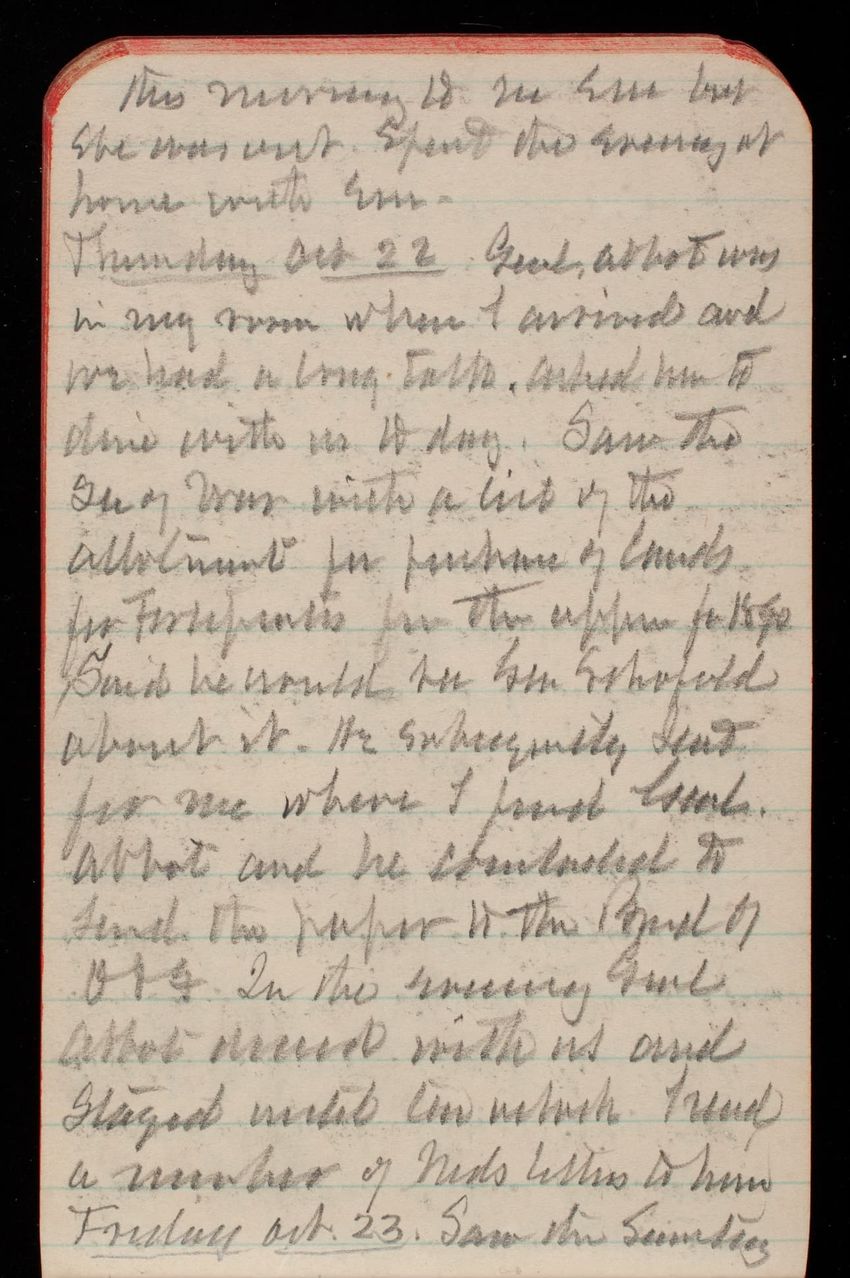 this morning to see Em but
She was out. Spent the evening at
home with Em -
Thursday Oct 22. Genl. Abbot was
in my room when I arrived and
we had a long talk. Asked him to
dine with us to day. Saw the
Sec of War with a list of the
allotment for purchase of lands
for Fortifications for the appn for 1890
Said he would see Gen Schofield
about it. He subsequently sent
for me where I found Genl.
Abbot and he concluded to
send the paper to the Board of
O & F. In the evening Genl
Abbot dined with us and
Stayed until ten oclock. I read
a number of Neds letters to him
Friday Oct. 23. Saw the Secretary